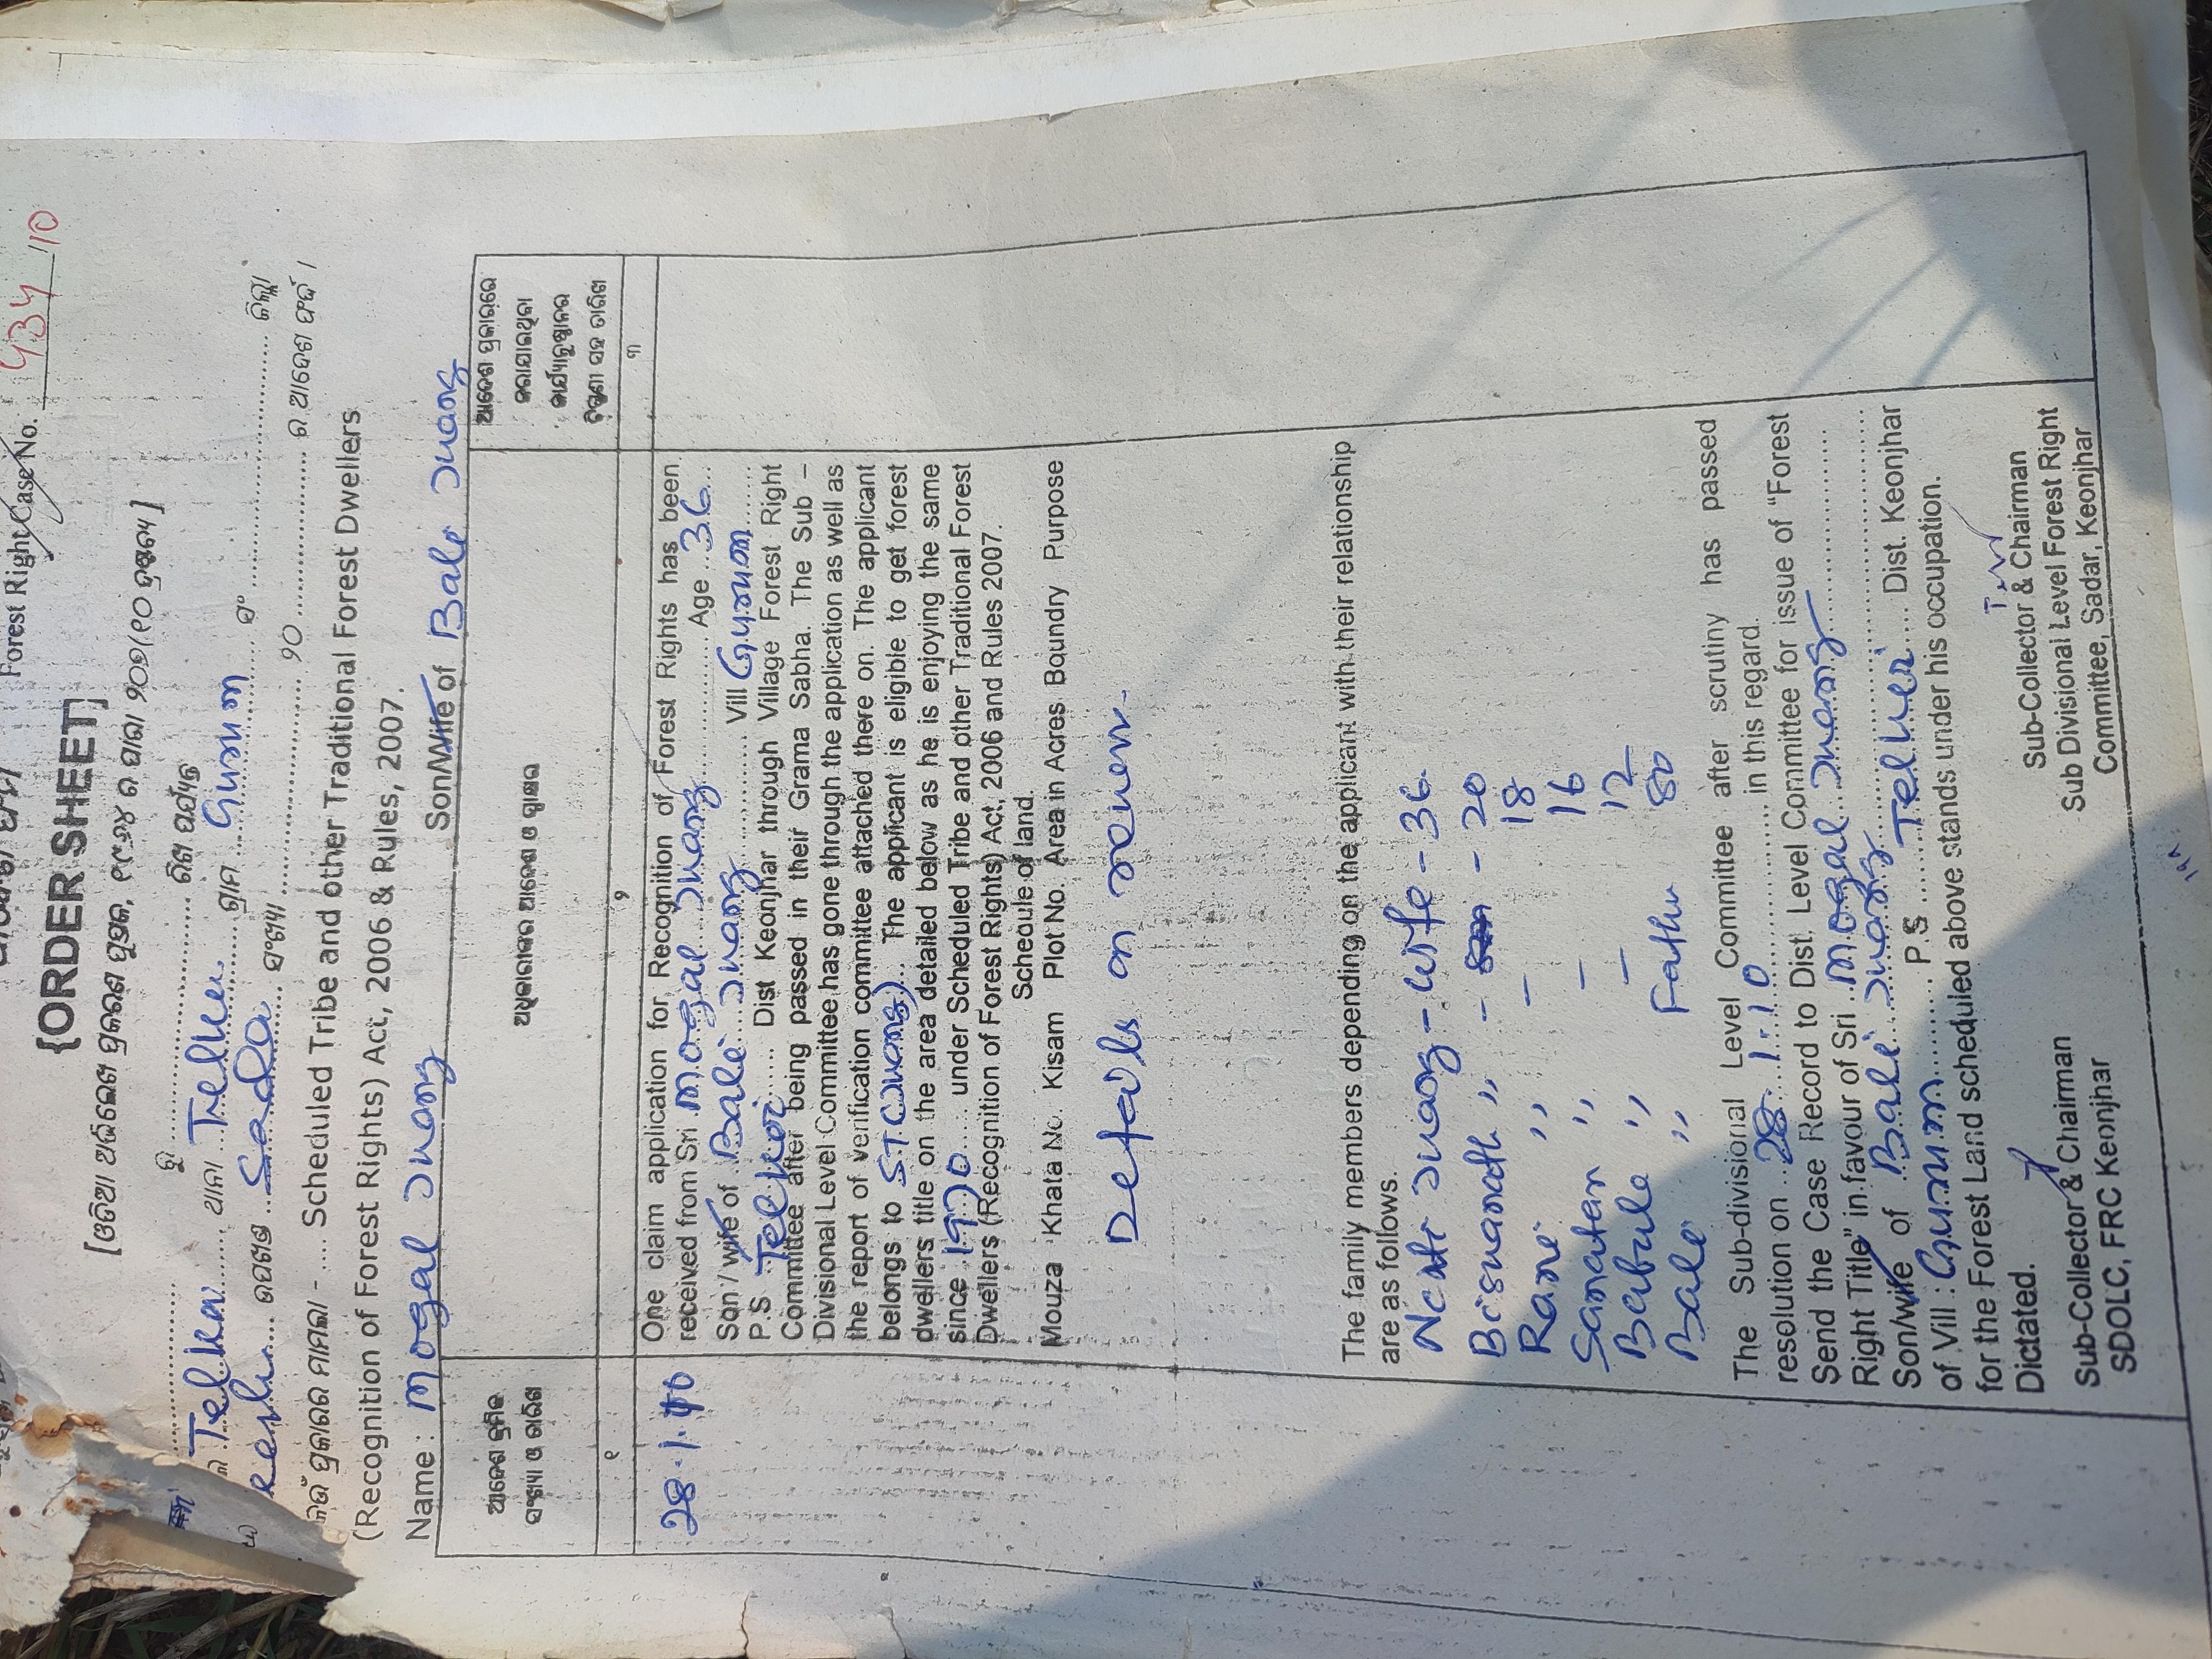 Forest Right Case No. 434/10
{ORDER SHEET}
[ଓଡିଆ ଅର୍ଡରଲେଖ ପ୍ରକରଣ ପୁସ୍ତକ, ୧୯୬୪ ର ପାରା ୨୦୬(୧୦ ଦ୍ରଷ୍ଟବ୍ୟ ]
ରୁ .............................. ରିଖ ପର୍ଯ୍ୟନ୍ତ
Telkoi ......, ଥାନା ..Telkoi.......... ଗ୍ରାମ Gunum ...... ସଂ .............................. ଜିଲ୍ଲା
ରେଭେନ୍ୟୁ ..Sadar...... ସଂଖ୍ୟା .............................. ୨୦ .................... ର ଆଦେଶ ଫର୍ଦ୍ଦ ।
କେଉଁ ପ୍ରକାରର ମାମଲା - .... Scheduled Tribe and other Traditional Forest Dwellers
(Recognition of Forest Rights) Act, 2006 & Rules, 2007.
Name : Mogal Juang Son/Wife of Bale Juang
ଆଦେଶ କ୍ରମିକ ସଂଖ୍ୟା ଓ ତାରିଖ
ଅଧିକାରୀଙ୍କର ଆଦେଶ ଓ ସ୍ୱାକ୍ଷର
ଆଦେଶ ପ୍ରକାରରେ
କରାଯାଇଥିବା
କାର୍ଯ୍ୟାନୁଷ୍ଠାନର
ଟିପ୍ପଣୀ ସହ ତାରିଖ
୧ ୨ ୩
28.1.10
One claim application for Recognition of Forest Rights has been
received from Sri Mogal Juang .................... Age ..36...
Son / wife of ..Bale..Juang .......... Vill Gunum..........
P.S ..Telkoi...... Dist Keonjhar through Village Forest Right
Committee after being passed in their Grama Sabha. The Sub –
Divisional Level Committee has gone through the application as well as
the report of verification committee attached there on. The applicant
belongs to ST(Juang)... The applicant is eligible to get forest
dwellers title on the area detailed below as he is enjoying the same
since .1970..... under Scheduled Tribe and other Traditional Forest
Dwellers (Recognition of Forest Rights) Act, 2006 and Rules 2007.
Schedule of land.
Mouza Khata No. Kisam Plot No. Area in Acres Boundry Purpose
Details on
The family members depending on the applicant with their relationship
are as follows.
Juang - wife - 36
Bisnanath ,, - son - 20
Rani ,, - 18
Sanatan ,, - 16
Babule ,, - 12
Bale ,, Father 80
The Sub-divisional Level Committee after scrutiny has passed
resolution on ..28.1.10............... in this regard.
Send the Case Record to Dist. Level Committee for issue of "Forest
Right Title" in favour of Sri ..Mogal..Juang....................
Son/wife of ..Bali..Juang....................
of Vill : Gunum............... P.S ..........Telkoi...... Dist. Keonjhar
for the Forest Land scheduled above stands under his occupation.
Dictated.
Sub-Collector & Chairman
SDOLC, FRC Keonjhar
Sub-Collector & Chairman
Sub Divisional Level Forest Right
Committee, Sadar, Keonjhar